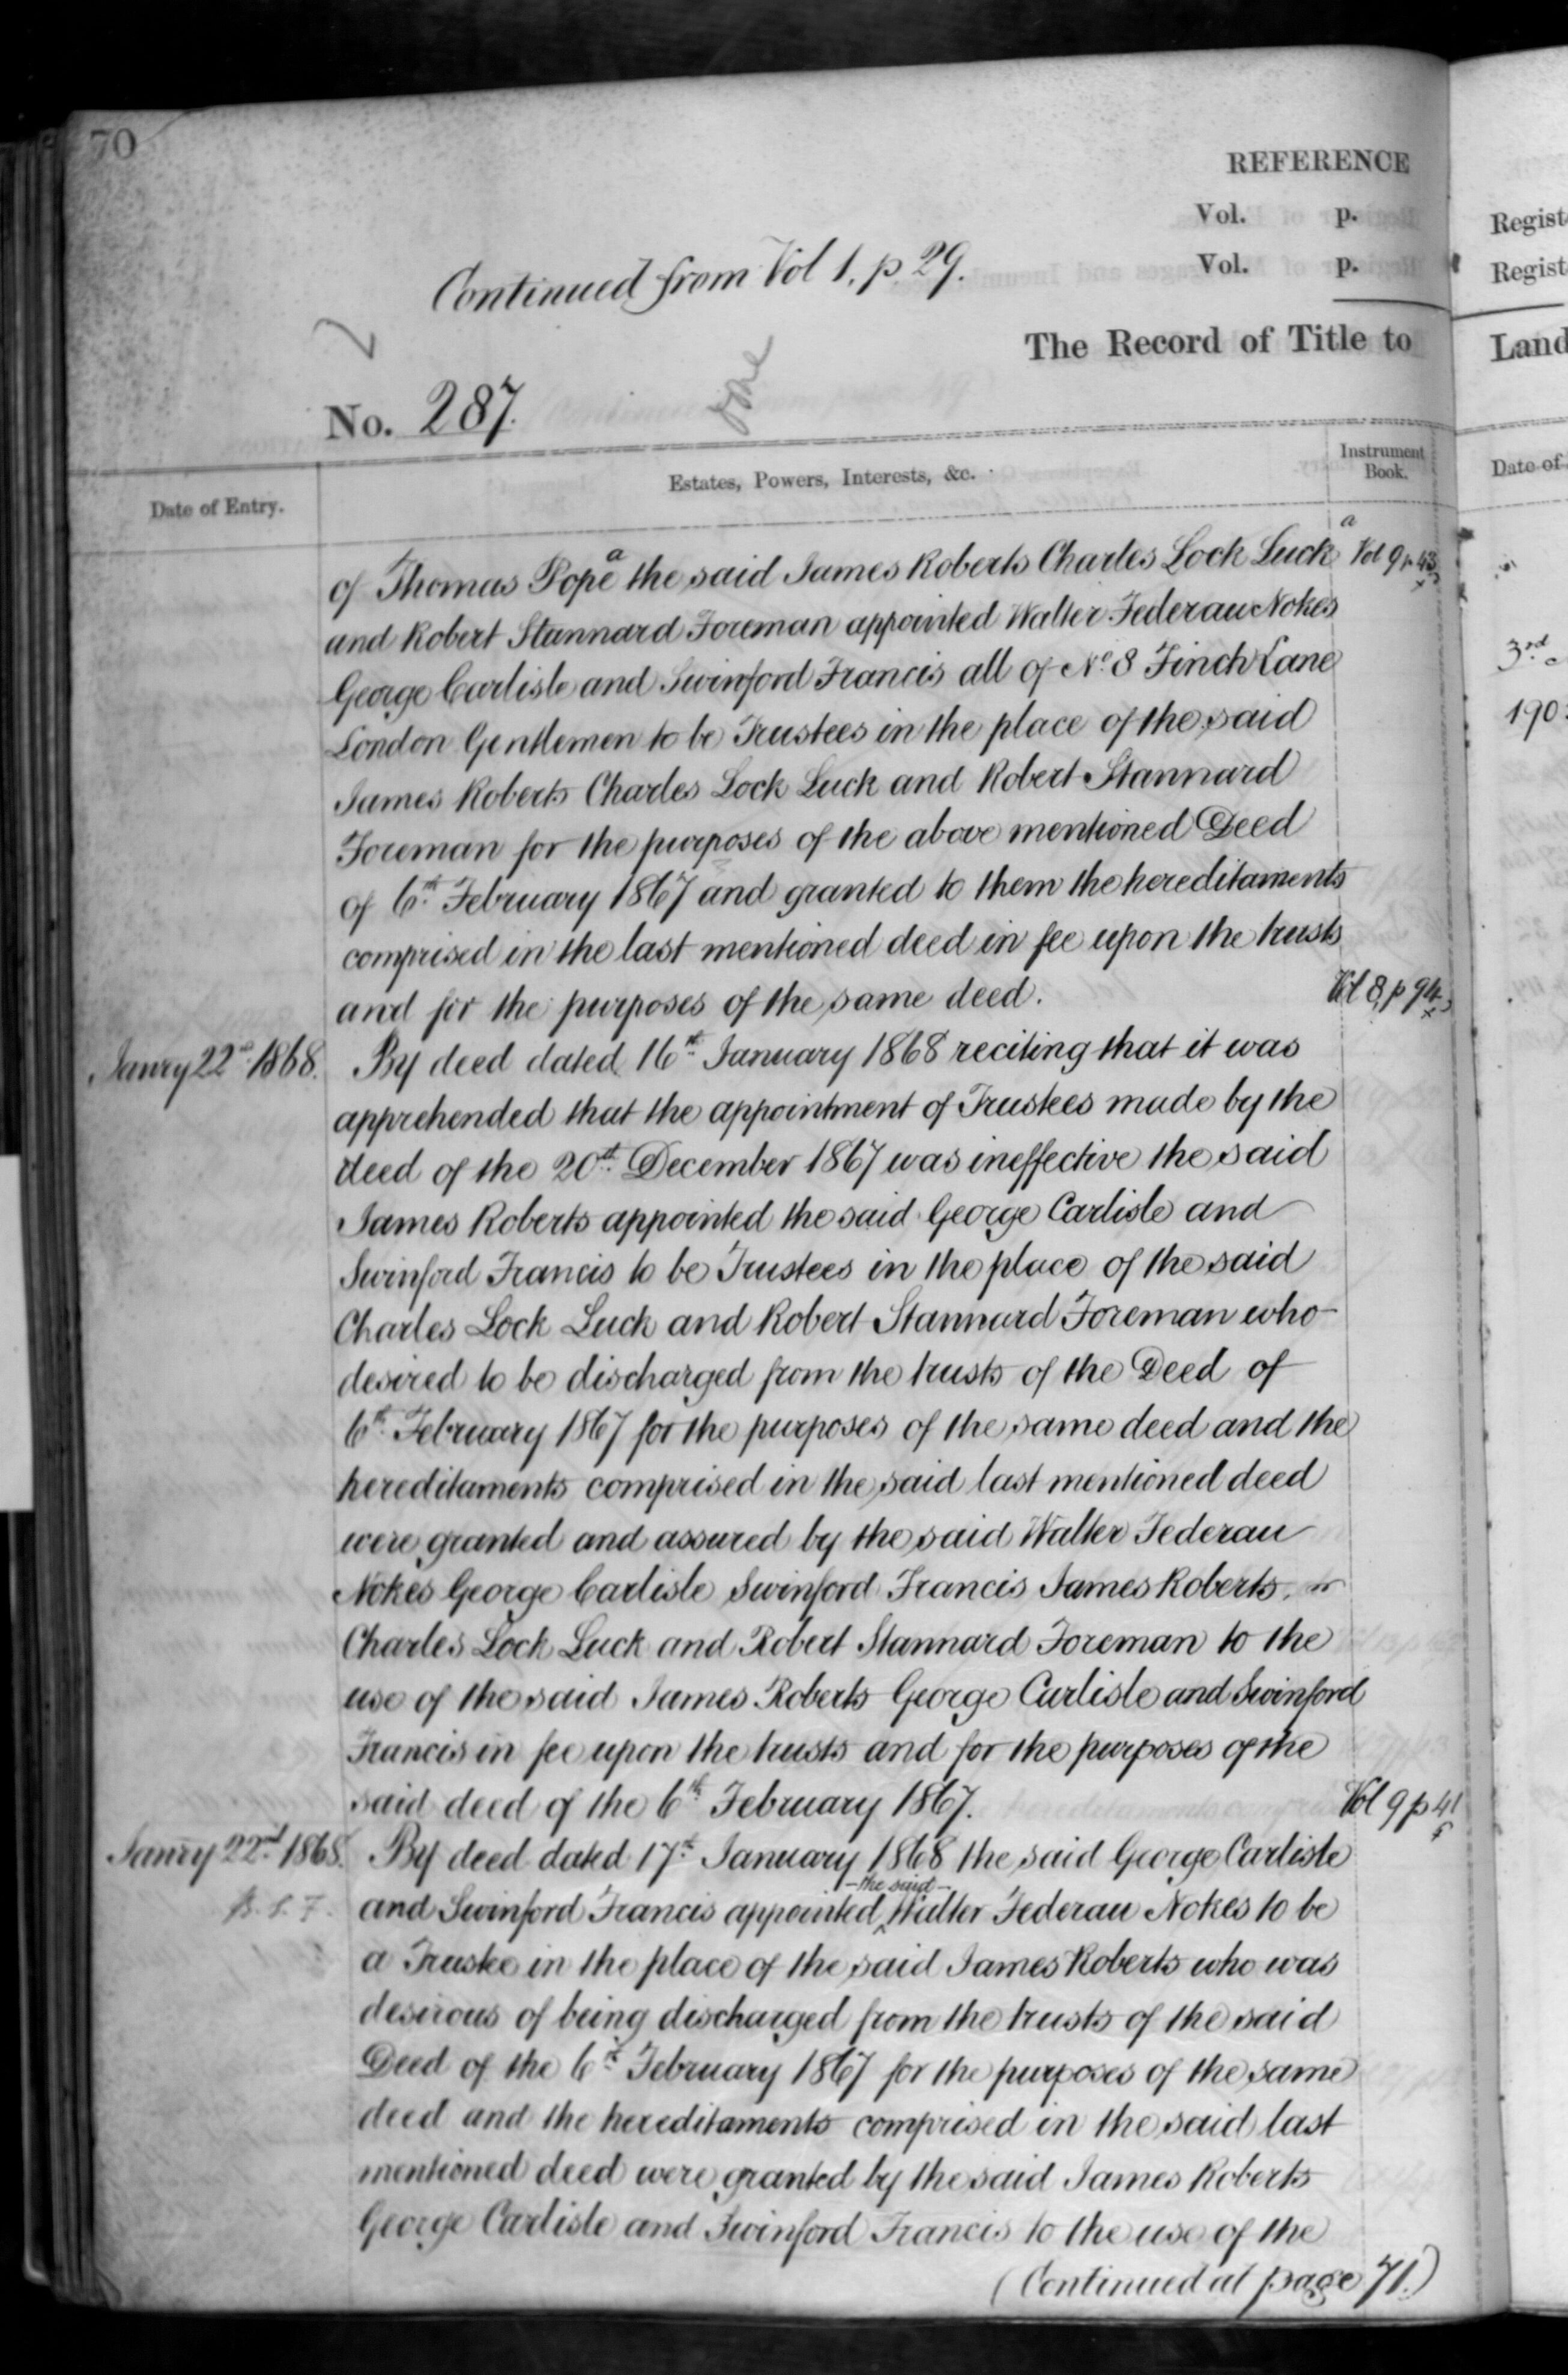 70
REFERENCE
Vol. p.
Vol. p.
Continued from Vol 1, p 29.
The Record of Title to
No. 287.
Date of Entry.
Estates, Powers, Interests, &c.
Instrument Book.
of Thomas Pope a the said James Roberts Charles Lock Luck a Vol 9 p 43
and Robert Stannard Foreman appointed Walter Federau Nokes
George Carlisle and Swinford Francis all of No. 8 Finch Lane
London Gentlemen to be Trustees in the place of the said
James Roberts Charles Lock Luck and Robert Stannard
Foreman for the purposes of the above mentioned Deed
of 6th February 1867 and granted to them the hereditaments
comprised in the last mentioned deed in fee upon the trusts
and for the purposes of the same deed. Vol 8, p 94
Janry 22nd 1868. By deed dated 16th January 1868 reciting that it was
apprehended that the appointment of Trustees made by the
deed of the 20th December 1867 was ineffective the said
James Roberts appointed the said George Carlisle and
Swinford Francis to be Trustees in the place of the said
Charles Lock Luck and Robert Stannard Foreman who
desired to be discharged from the trusts of the Deed of
6th February 1867 for the purposes of the same deed and the
hereditaments comprised in the said last mentioned deed
were granted and assured by the said Walter Federau
Nokes George Carlisle Swinford Francis James Roberts
Charles Lock Luck and Robert Stannard Foreman to the
use of the said James Roberts George Carlisle and Swinford
Francis in fee upon the trusts and for the purposes of the
said deed of the 6th February 1867. Vol 9 p 41
Janry 22nd 1868. By deed dated 17th January 1868 the said George Carlisle
and Swinford Francis appointed the said Walter Federau Nokes to be
a Trustee in the place of the said James Roberts who was
desirous of being discharged from the trusts of the said
Deed of the 6th February 1867 for the purposes of the same
deed and the hereditaments comprised in the said last
mentioned deed were granted by the said James Roberts
George Carlisle and Swinford Francis to the use of the
(Continued at page 71.)
Regist
Regist
Land
Date of
3rd
190